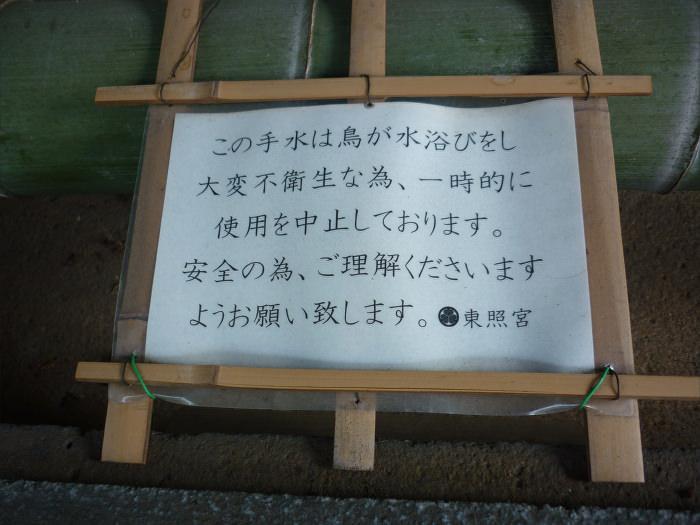 この手水は鳥が水浴びをし
大変不衛生な為、一時的に
使用を中止しております。
安全の為、ご理解くださいます
ようお願い致します。東照宮